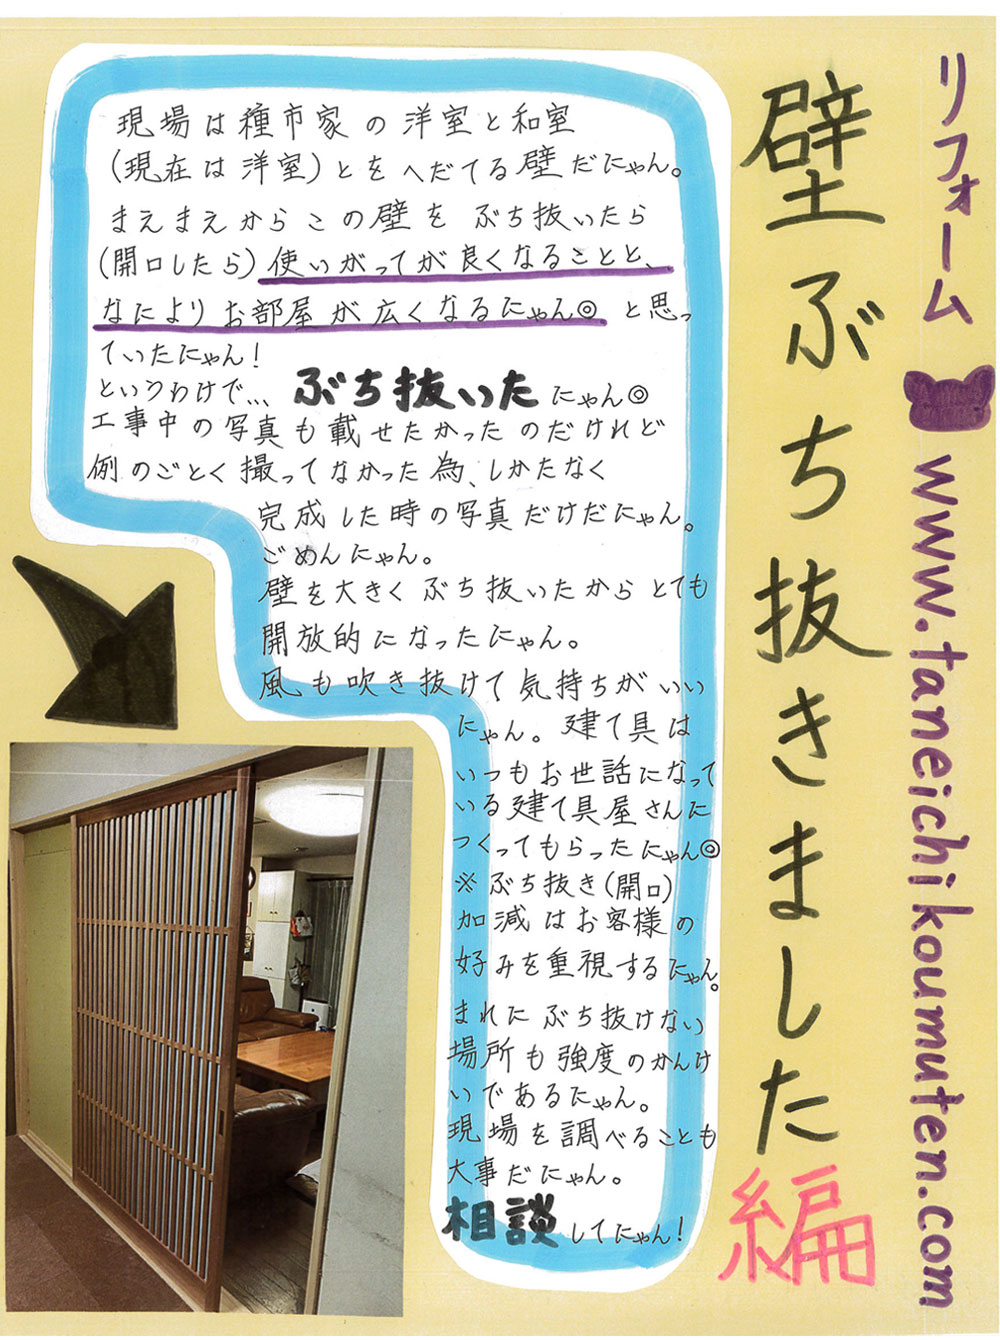 リフォーム
www.taneichikoumuten.com
壁ぶち抜きました
編
現場は種市家の洋室と和室
(現在は洋室)とをへだてる壁だにゃん。
まえまえからこの壁をぶち抜いたら
(開口したら)使いがってが良くなることと、
なによりお部屋が広くなるにゃん◎と思っ
ていたにゃん!
というわけで…ぶち抜いたにゃん◎
工事中の写真も載せたかったのだけれど
例のごとく撮ってなかった為、しかたなく
完成した時の写真だけだにゃん。
ごめんにゃん。
壁を大きくぶち抜いたからとても
開放的になったにゃん。
風も吹き抜けて気持ちがいい
にゃん。建て具は
いつもお世話になって
いる建て具屋さんに
つくってもらったにゃん◎
※ぶち抜き(開口)
加減はお客様の
好みを重視するにゃん。
まれにぶち抜けない
場所も強度のかんけ
いであるにゃん。
現場を調べることも
大事だにゃん。
相談してにゃん!